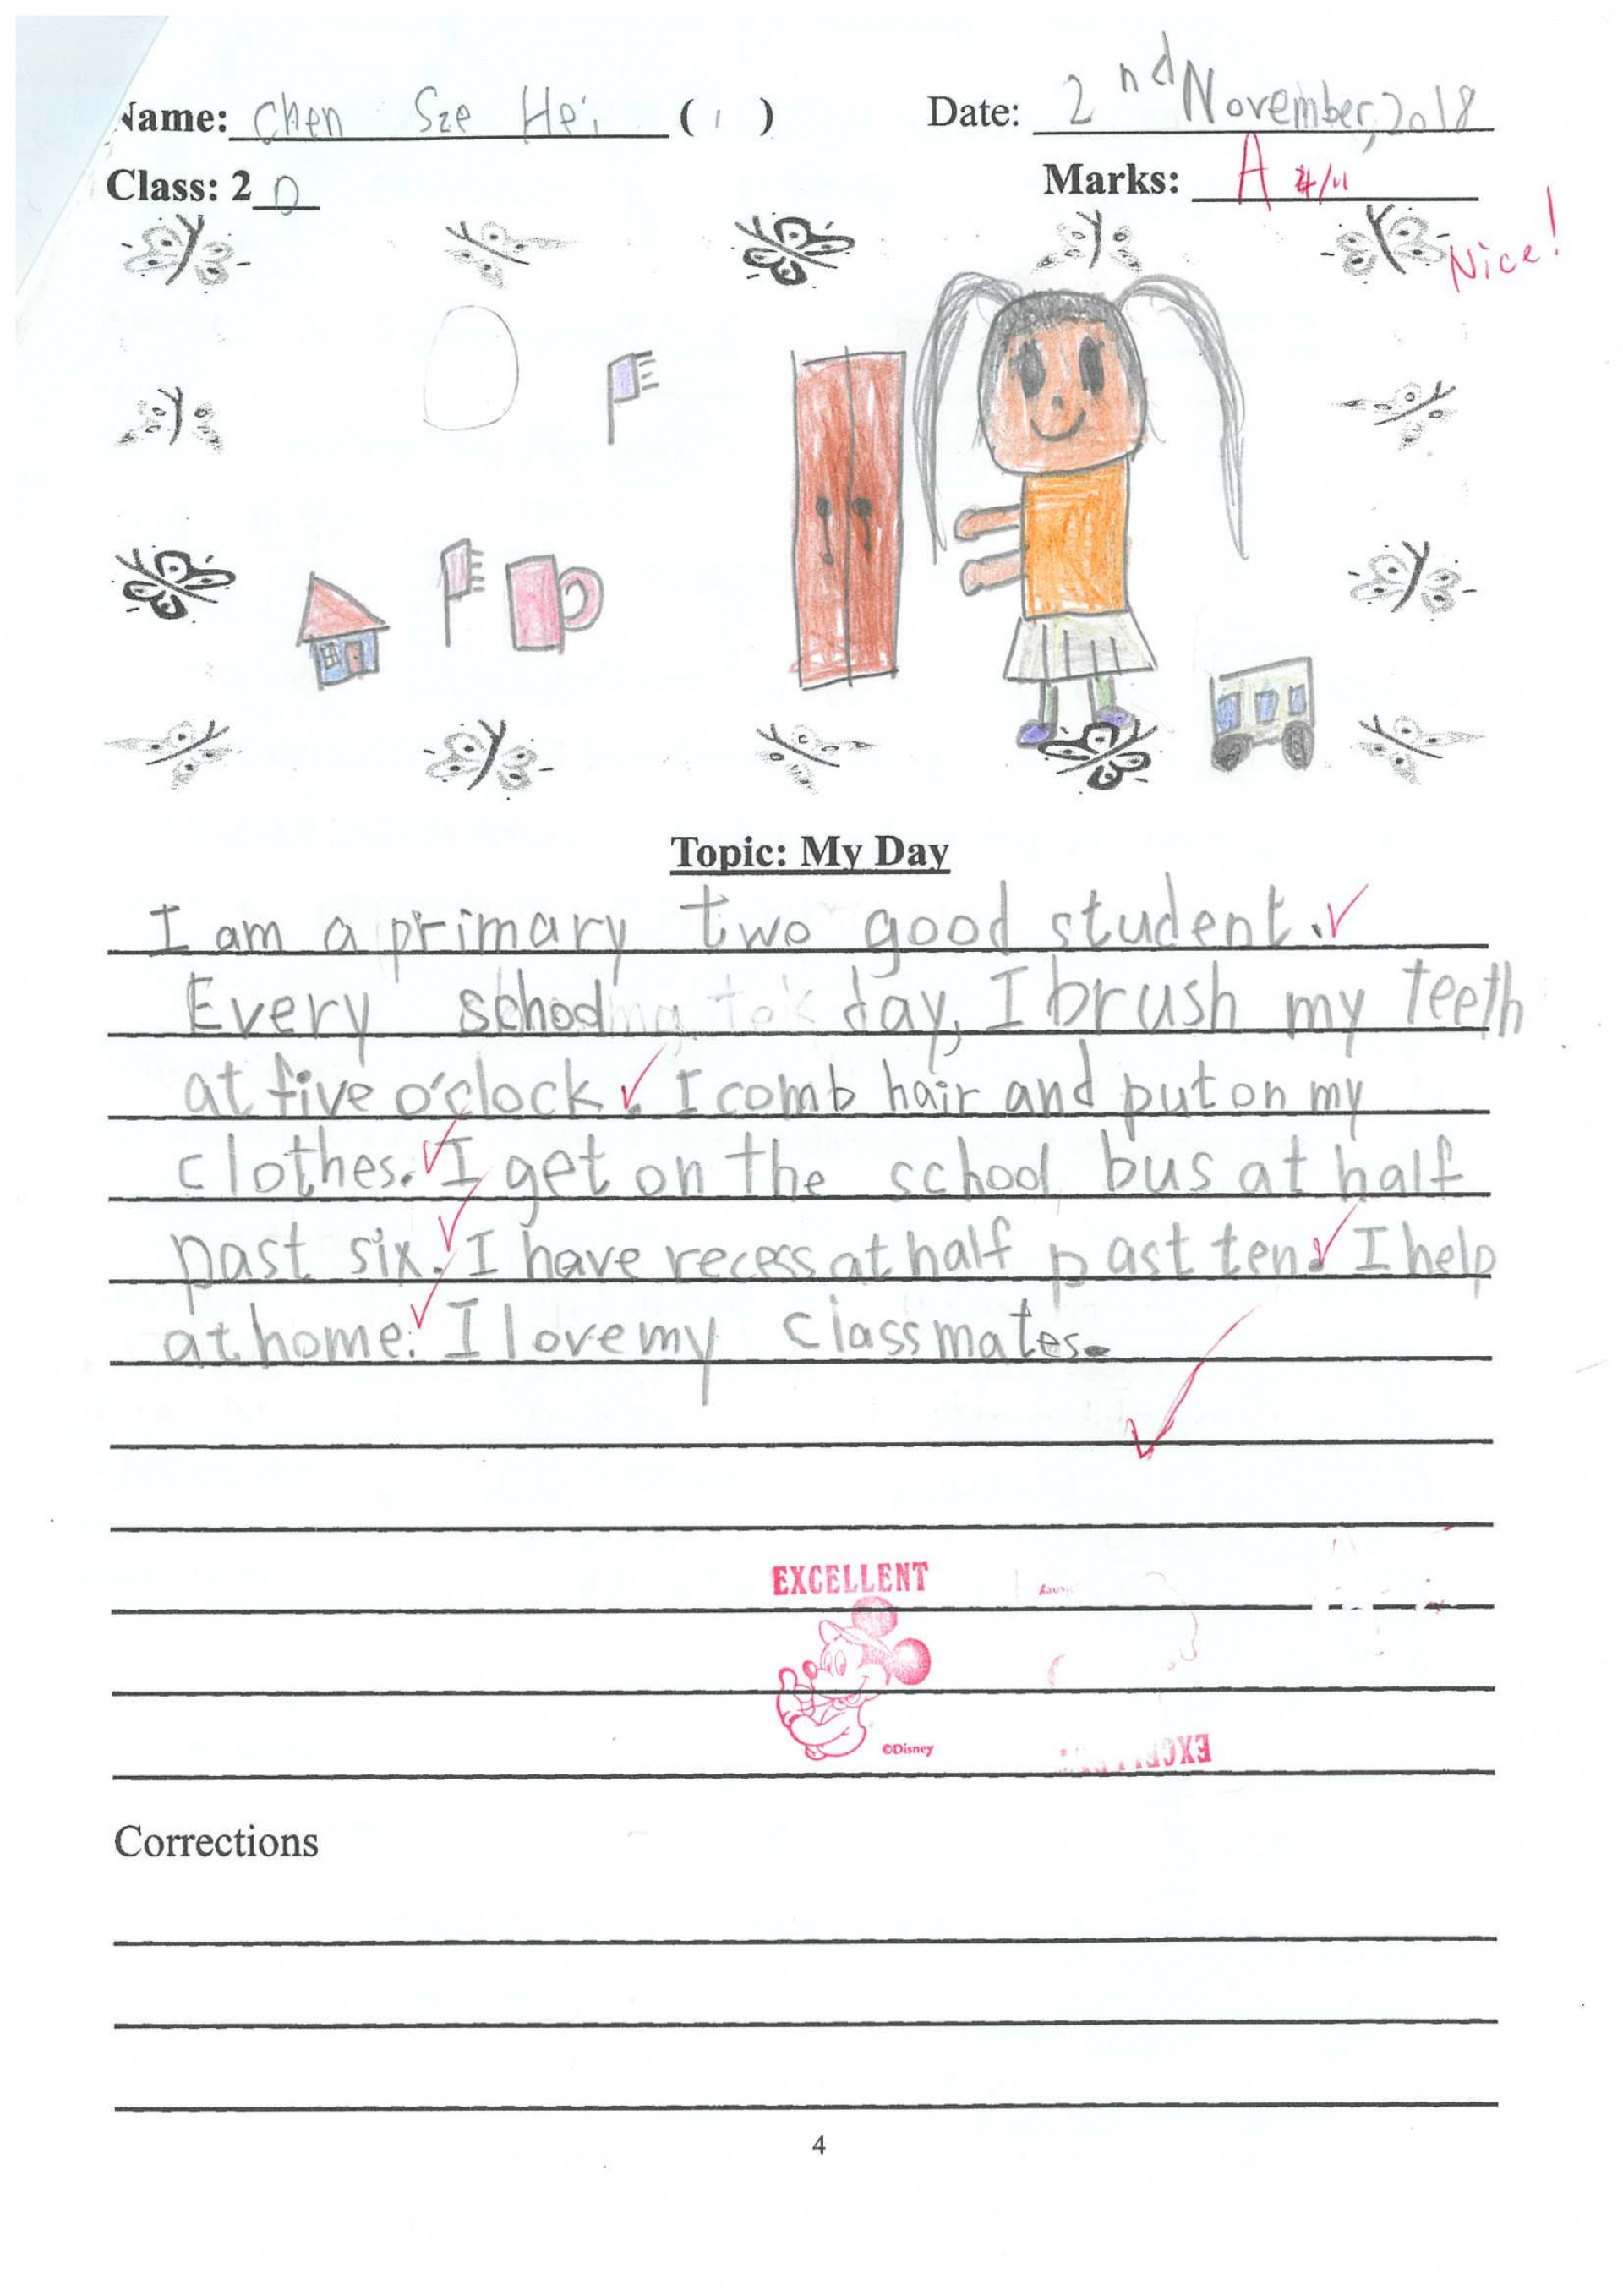 Name: Chen Sze Hei ( 1 ) Date: 2nd November, 2018
Class: 2 D Marks: A 4/11
Nice!
Topic: My Day
I am a primary two good student.
Every school day, I brush my teeth
at five o'clock. I comb hair and put on my
clothes. I get on the school bus at half
past six. I have recess at half past ten. I help
at home. I love my classmates.
EXCELLENT
©Disney
Corrections
4